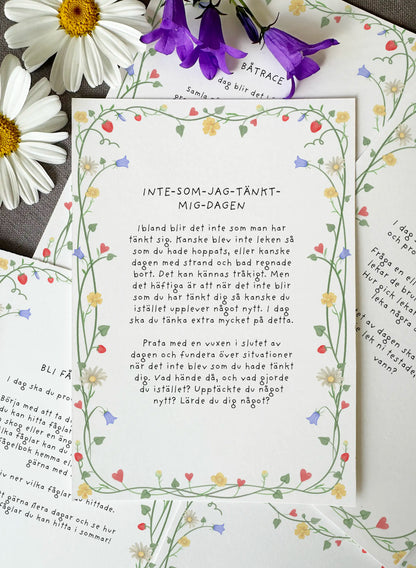 BÅTRACE
dag blir det
samla
INTE-SOM-JAG-TÄNKT-
MIG-DAGEN
Ibland blir det inte som man har
tänkt sig. Kanske blev inte leken så
som du hade hoppats, eller kanske
dagen med strand och bad regnade
bort. Det kan kännas tråkigt. Men
det häftiga är att när det inte blir
som du har tänkt dig så kanske du
istället upplever något nytt. I dag
ska du tänka extra mycket på detta.
Prata med en vuxen i slutet av
dagen och fundera över situationer
när det inte blev som du hade tänkt
dig. Vad hände då, och vad gjorde
du istället? Upptäckte du något
nytt? Lärde du dig något?
och pro
Fråga en
lekar de
Hur gick
leka
några
et av dagen, ska
lek ni testade,
vann?
BLI FÅ
I dag ska du
Börja med att ta
du kan hitta
skog eller en äng
fåglar kan du
fågelbok hemma
gärna med
iv ner vilka fåglar du hittade.
t gärna flera dagar och se hur
fåglar du kan hitta i sommar!